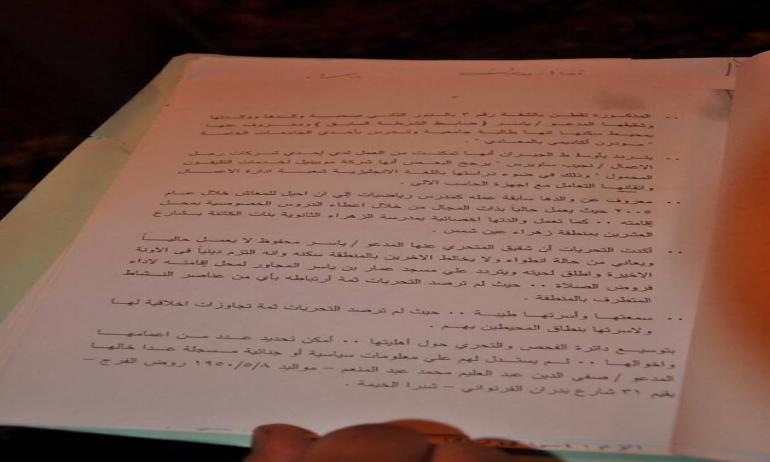 المذكورة تقطن بالشقة رقم ٣ بالدور الثاني صحبة والدها ووالدتها
وشقيقها المدعو / ياسر ( ضابط الشرطة السابق ) ومعروف عنها
بمحيط سكنها انها طالبة جامعية وتدرس بأحدي الجامعات الخاصة
" مودرن أكاديمي بالمعادي " .
يتردد بأوساط الجيران أنها تمكنت من العمل لدي إحدي شركات رجل
الاعمال / نجيب ساويرس " يرجح البعض أنها شركة موبينيل لخدمات التليفون
المحمول " وذلك في ضوء دراستها باللغة الانجليزية شعبة ادارة الاعمال
واتقانها التعامل مع اجهزة الحاسب الآلي .
معروف عن والدها سابقة عمله كمدرس رياضيات إلي ان احيل للمعاش خلال عام
٢٠٠٥ حيث يعمل حالياً بذات المجال من خلال اعطاء الدروس الخصوصية بمحل
إقامته ٠٠ كما تعمل والدتها اخصائية بمدرسة الزهراء الثانوية بنات الكائنة بشارع
العشرين بمنطقة زهراء عين شمس .
أكدت التحريات أن شقيق المتحري عنها المدعو / ياسر محفوظ لا يعمل حالياً
ويعاني من حالة انطواء ولا يخالط الآخرين بالمنطقة سكنه وانه التزم دينياً في الآونة
الاخيرة واطلق لحيته ويتردد علي مسجد عمار بن ياسر المجاور لمحل إقامته لاداء
فروض الصلاة ٠٠ حيث لم ترصد التحريات ثمة أرتباطه بأي من عناصر النشاط
المتطرف بالمنطقة .
سمعتها وأسرتها طيبة ٠٠ حيث لم ترصد التحريات ثمة تجاوزات اخلاقية لها
ولاسرتها بنطاق المحيطين بهم .
بتوسيع دائرة الفحص والتحري حول أهليتها ٠٠ أمكن تحديد عدد من اعمامها
واخوالها ٠٠ لم يستدل لهم علي معلومات سياسية أو جنائية مسجلة عدا خالها
المدعو / صفي الدين عبد العليم محمد عبد المنعم – مواليد ١٩٥٠/٥/٨ روض الفرج –
يقيم ٣١ شارع بدران الفرنواني – شبرا الخيمة .